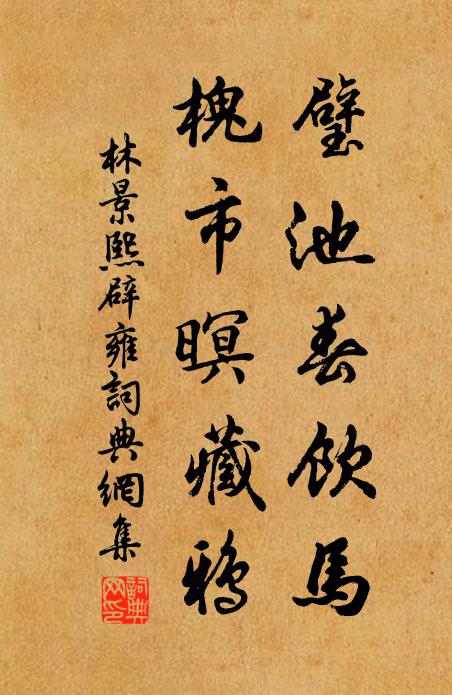 璧池春飲馬
槐市暝藏鴉
林景熙辟雍詞典網集
詞典網印